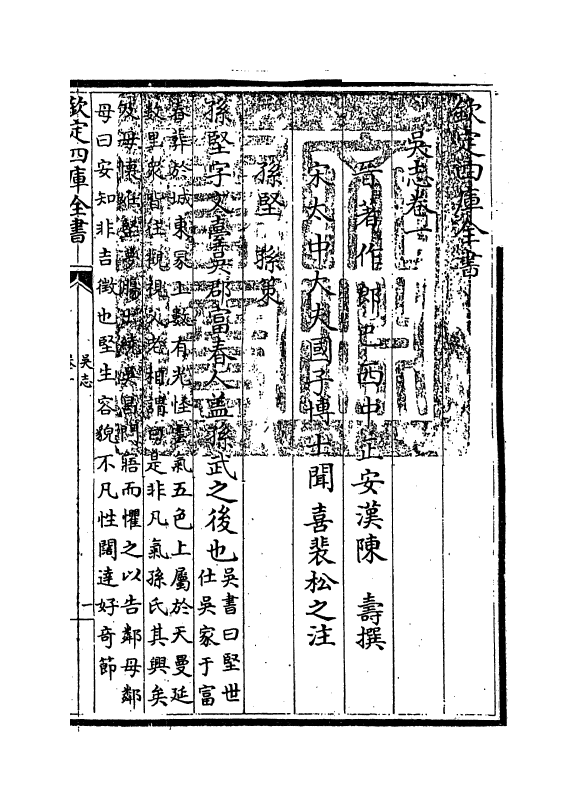 欽定四庫全書
吳志卷一
晉著作郎巴西中正安漢陳　壽撰
宋太中大夫國子博士聞喜裴松之注
孫堅　孫策
孫堅字文臺吳郡富春人蓋孫武之後也吳書曰堅世
仕吳家于富
春葬於城東冢上數有光怪雲氣五色上屬於天曼延
數里衆皆往觀視父老相謂曰是非凡氣孫氏其興矣
及母懷姙堅夢腸出繞吳昌門寤而懼之以告鄰母鄰
母曰安知非吉徵也堅生容貌不凡性闊達好奇節
欽定四庫全書
吳志
卷一
一